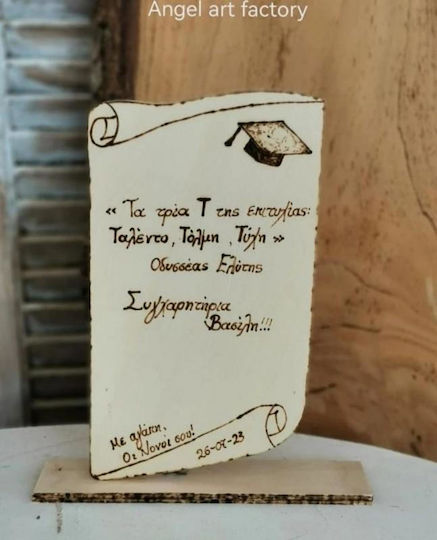 Angel art factory
« Τα τρία Τ της επιτυχίας:
Ταλέντο, Τόλμη, Τύχη »
Οδυσσέας Ελύτης
Συγχαρητήρια
Βασίλη!!!
Με αγάπη,
Οι Νονοί σου!
26-07-23